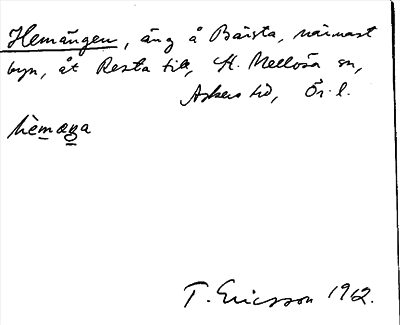 Hemängen, äng å Bärsta, närmast
byn, åt Resta till, St. Mellösa sn,
Askers hd, Ör. l.
hèmæŋa
T. Ericsson 1962.